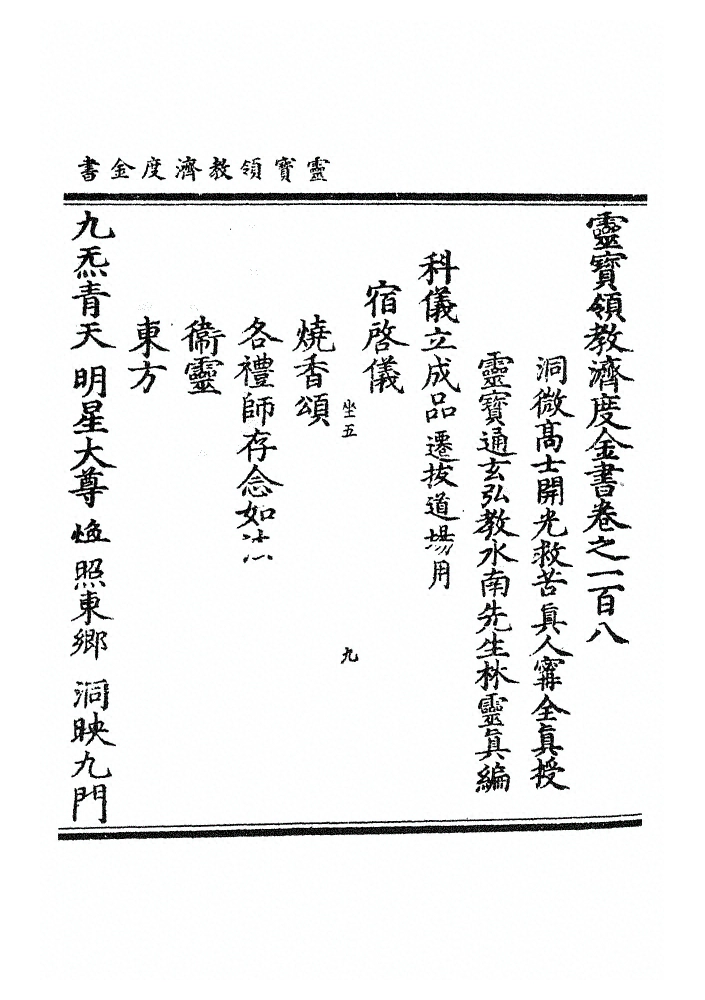 靈寶領教濟度金書
靈寶領教濟度金書卷之一百八
洞微高士開光救苦眞人寗全眞授
靈寶通玄弘教水南先生林靈眞編
科儀立成品 遷拔道場用
宿啓儀
坐五
九
燒香頌
各禮師存念如法
衞靈
東方
九炁青天 明星大尊 煥照東鄉 洞映九門